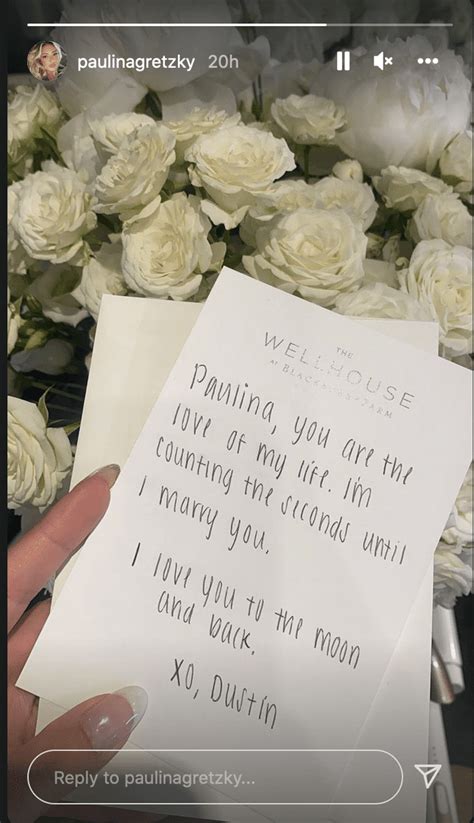 paulinagretzky 20h
THE
WELLHOUSE
AT BLACKBERRY FARM
Paulina, you are the
love of my life. I'm
counting the seconds until
I marry you.
I love you to the moon
and back.
XO, Dustin
Reply to paulinagretzky...